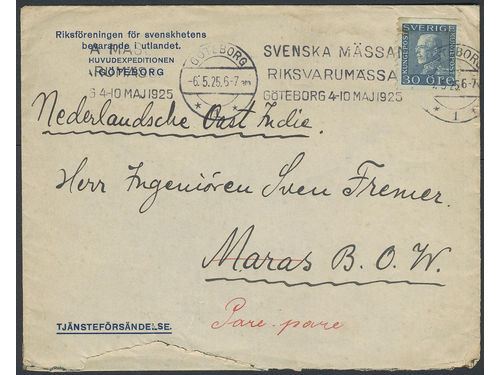 Riksföreningen för svenskhetens
bevarande i utlandet.
HUVUDEXPEDITIONEN
GÖTEBORG
GÖTEBORG
-6.5.25.6-7
SVENSKA MÄSSAN
RIKSVARUMÄSSA
GÖTEBORG 4-10 MAJ 1925
SVERIGE
30 ÖRE
G 4-10 MAJ 1925
Nederlandsche Oost Indie.
Herr Ingeniören Sven Fremer.
Maras B. O. W.
Pare-pare
TJÄNSTEFÖRSÄNDELSE.